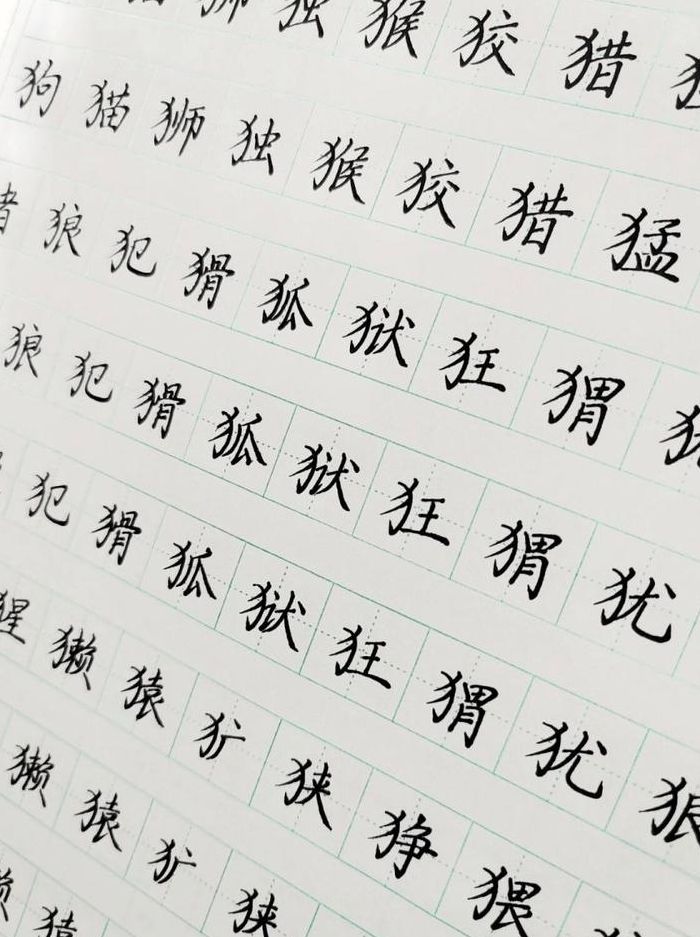 独 猴 狡 猎
狗 猫 狮 独 猴 狡 猎 猛
狼 犯 猾 狐 狱 狂 猬
狼 犯 猾 狐 狱 狂 猬 犹
犯 猾 狐 狱 狂 猬 犹 狠
猩 獭 猿 犷 狭 狰 猥
獭 猿 犷 狭
猿